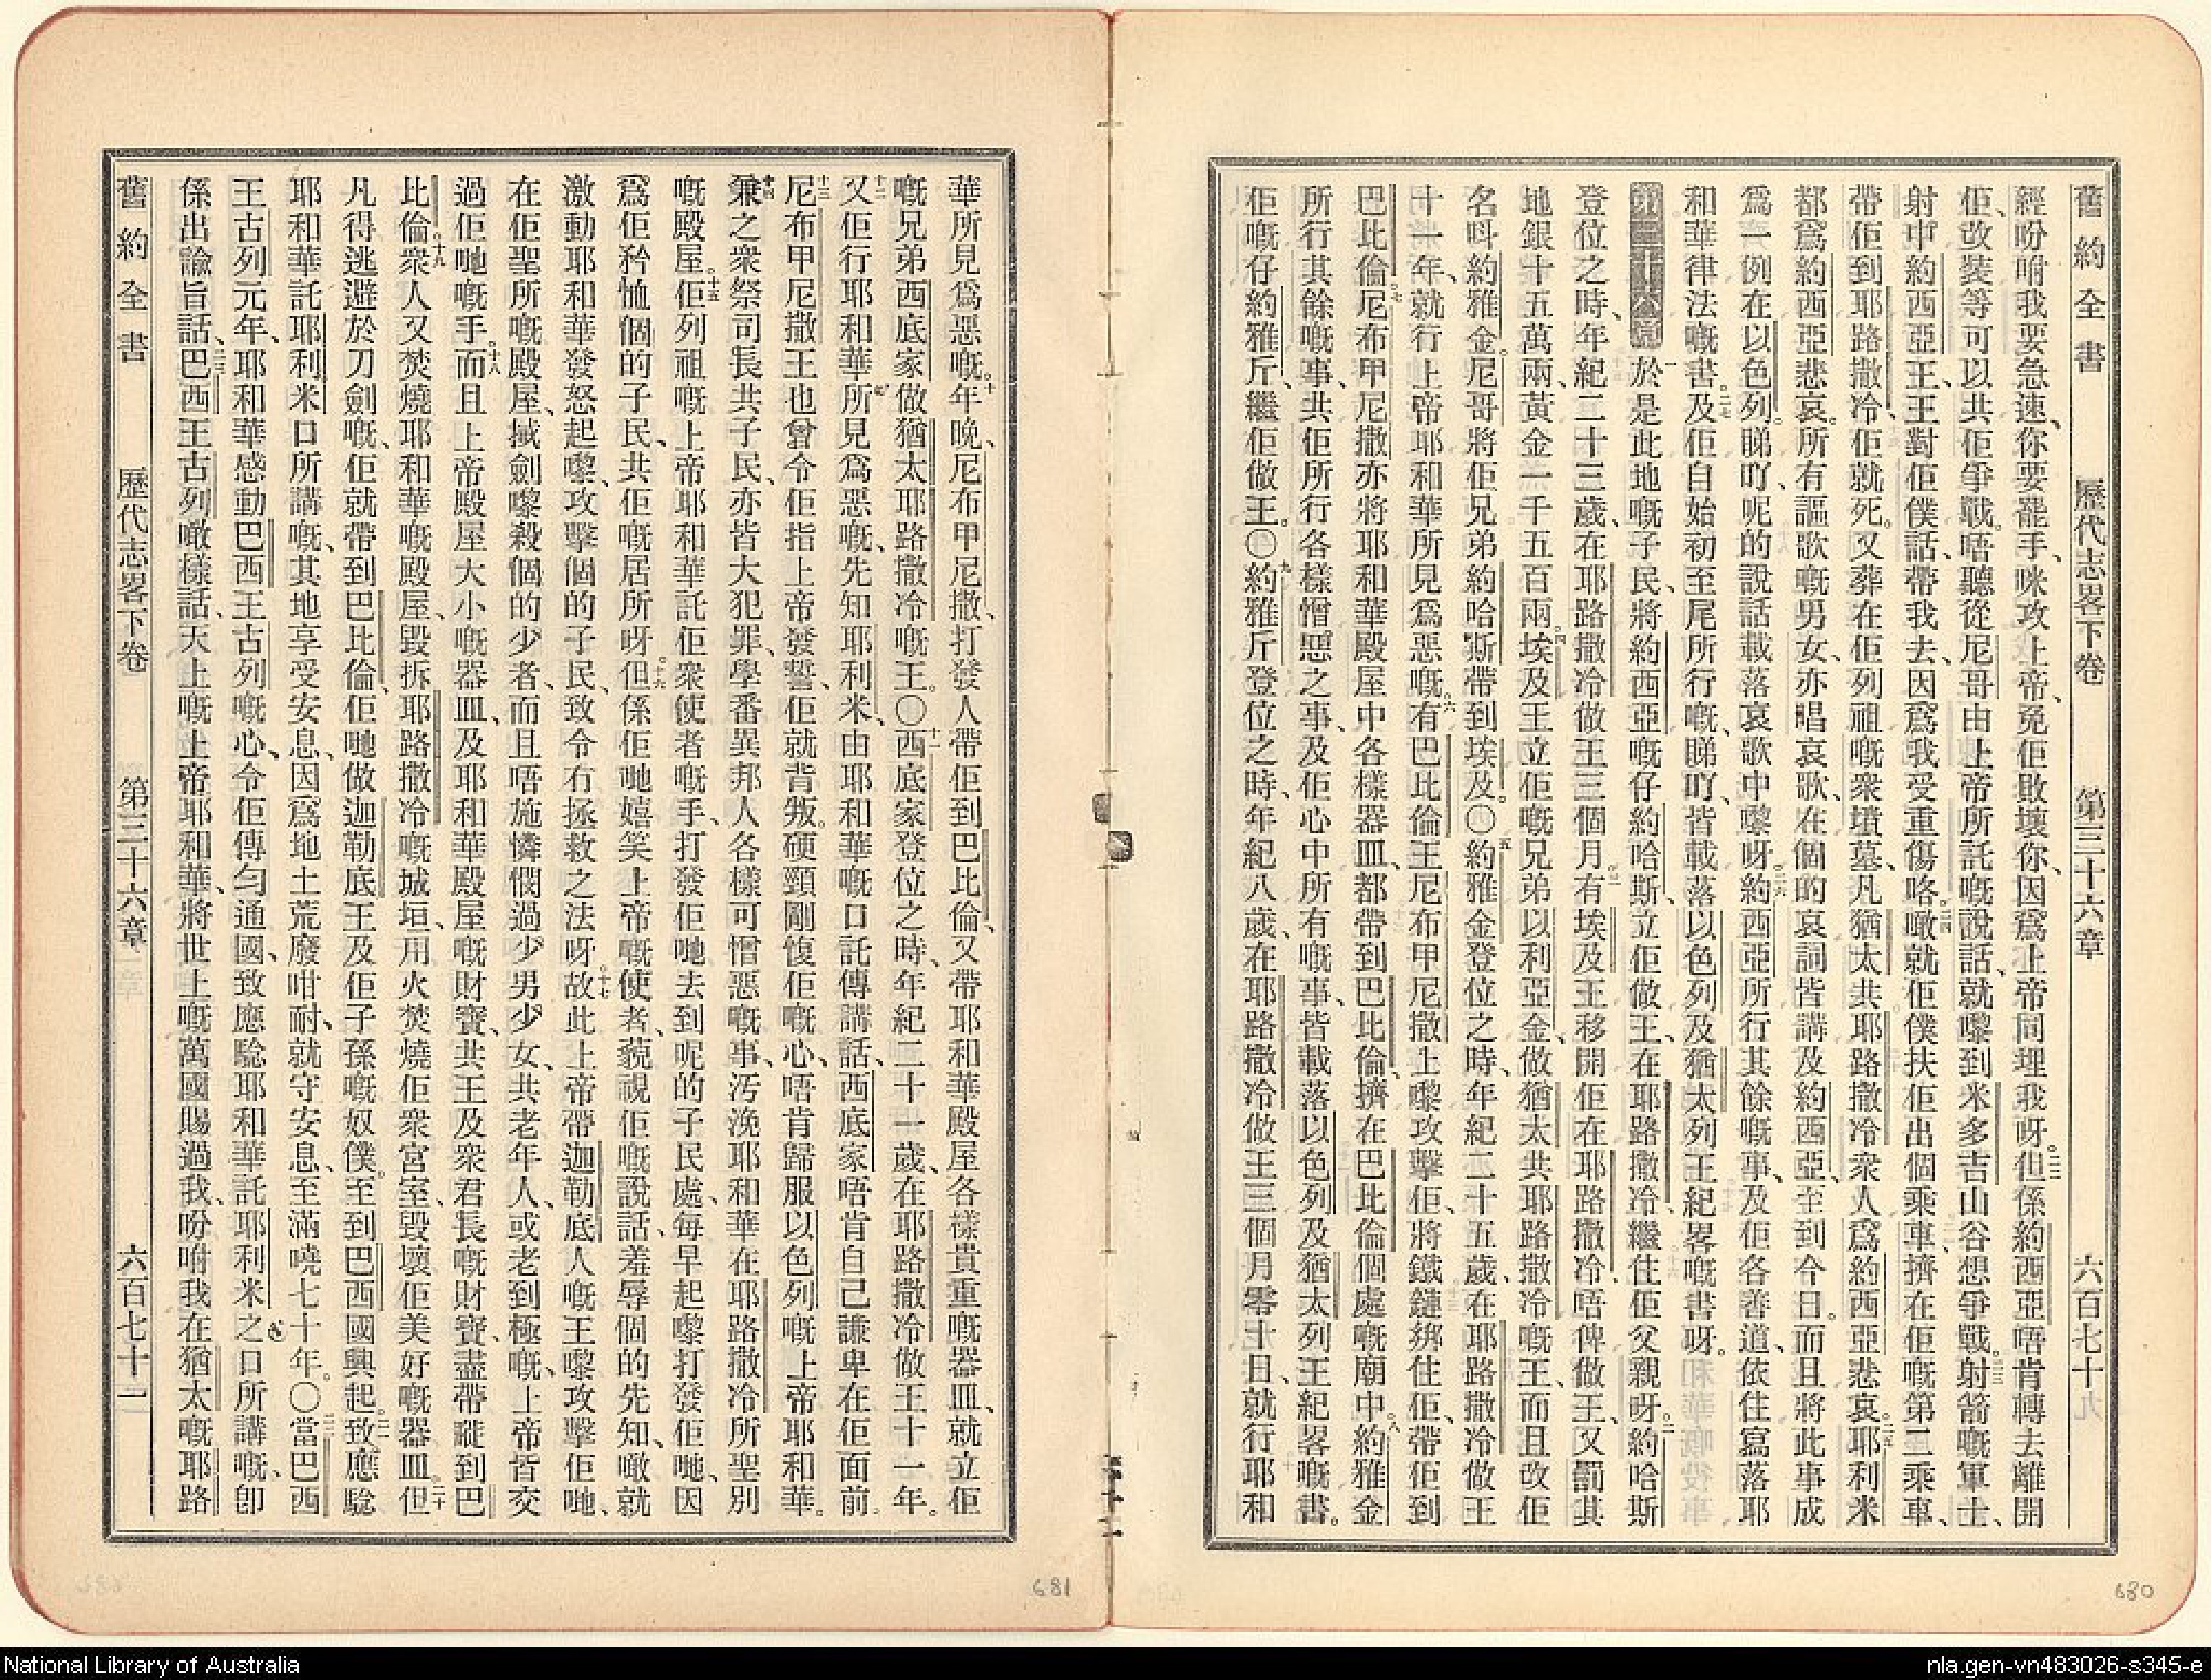 舊約全書　歷代志畧下卷　第三十六章　六百七十
經吩咐我要急速、你要罷手、咪攻上帝、免佢敗壞你、因爲上帝同埋我呀。二二但係約西亞唔肯轉去離開
佢、改裝等可以共佢爭戰。唔聽從尼哥由上帝所託嘅說話、就嚟到米多吉山谷想爭戰。二三射箭嘅軍士、
射中約西亞王、王對佢僕話、帶我去、因爲我受重傷咯。二四噉就佢僕扶佢出個乘車、擠在佢嘅第二乘車、
帶佢到耶路撒冷、佢就死。又葬在佢列祖嘅衆墳墓、凡猶太共耶路撒冷衆人爲約西亞悲哀。二五耶利米
都爲約西亞悲哀。所有謳歌嘅男女、亦唱哀歌、在個的哀詞皆講及約西亞、至到今日。而且將此事成
爲一例在以色列。睇吖、呢的說話載落哀歌中嚟呀。二六約西亞所行其餘嘅事、及佢各善道、依住寫落耶
和華律法嘅書。二七及佢自始初至尾所行嘅、睇吖、皆載落以色列及猶太列王紀畧嘅書呀。
第三十六章 一於是此地嘅子民、將約西亞嘅仔約哈斯、立佢做王、在耶路撒冷、繼住佢父親呀。二約哈斯
登位之時、年紀二十三歲、在耶路撒冷做王三個月。三有埃及王移開佢在耶路撒冷、唔俾做王、又罰其
地銀十五萬兩、黃金一千五百兩。四埃及王立佢嘅兄弟以利亞金、做猶太共耶路撒冷嘅王、而且改佢
名呌約雅金。尼哥將佢兄弟約哈斯帶到埃及。〇五約雅金登位之時、年紀二十五歲、在耶路撒冷做王
十一年、就行上帝耶和華所見爲惡嘅。六有巴比倫王尼布甲尼撒上嚟攻擊佢、將鐵鏈綁住佢、帶佢到
巴比倫。七尼布甲尼撒亦將耶和華殿屋中各樣器皿、都帶到巴比倫、擠在巴比倫個處嘅廟中。八約雅金
所行其餘嘅事、共佢所行各樣憎惡之事、及佢心中所有嘅事、皆載落以色列及猶太列王紀畧嘅書。
佢嘅仔約雅斤、繼佢做王。〇九約雅斤登位之時、年紀八歲、在耶路撒冷做王三個月零十日、就行耶和
680
華所見爲惡嘅。十年晚、尼布甲尼撒、打發人帶佢到巴比倫、又帶耶和華殿屋各樣貴重嘅器皿、就立佢
嘅兄弟西底家做猶太耶路撒冷嘅王。〇十一西底家登位之時、年紀二十一歲、在耶路撒冷做王十一年。
十二又佢行耶和華所見爲惡嘅、先知耶利米、由耶和華嘅口託傳講話、西底家唔肯自己謙卑在佢面前。
十三尼布甲尼撒王也曾令佢指上帝發誓、佢就背叛。硬頸剛愎佢嘅心、唔肯歸服以色列嘅上帝耶和華。
十四兼之衆祭司長共子民、亦皆大犯罪、學番異邦人各樣可憎惡嘅事、汚浼耶和華在耶路撒冷所聖別
嘅殿屋。十五佢列祖嘅上帝耶和華託佢衆使者嘅手、打發佢哋去到呢的子民處、每早起嚟打發佢哋、因
爲佢矜恤個的子民、共佢嘅居所呀。十六但係佢哋嬉笑上帝嘅使者、藐視佢嘅說話、羞辱個的先知、噉就
激動耶和華發怒起嚟、攻擊個的子民、致令冇拯救之法呀。十七故此上帝帶迦勒底人嘅王嚟攻擊佢哋、
在佢聖所嘅殿屋、摵劍嚟殺個的少者、而且唔施憐憫過少男少女、共老年人、或老到極嘅、上帝皆交
過佢哋嘅手。十八而且上帝殿屋大小嘅器皿、及耶和華殿屋嘅財寶、共王及衆君長嘅財寶、盡帶嘥到巴
比倫。十九衆人又焚燒耶和華嘅殿屋、毀拆耶路撒冷嘅城垣、用火焚燒佢衆宮室、毀壞佢美好嘅器皿。二十但
凡得逃避於刀劍嘅、佢就帶到巴比倫、佢哋做迦勒底王及佢子孫嘅奴僕。至到巴西國興起。二一致應騐
耶和華託耶利米口所講嘅、其地享受安息、因爲地土荒廢咁耐、就守安息、至滿曉七十年。〇二二當巴西
王古列元年、耶和華感動巴西王古列嘅心、令佢傳勻通國、致應騐耶和華託耶利米之口所講嘅、卽
係出諭旨話、二三巴西王古列噉樣話、天上嘅上帝耶和華、將世上嘅萬國賜過我、吩咐我在猶太嘅耶路
舊約全書　歷代志畧下卷　第三十六章　六百七十一
681
National Library of Australia
nla.gen-vn483026-s345-e